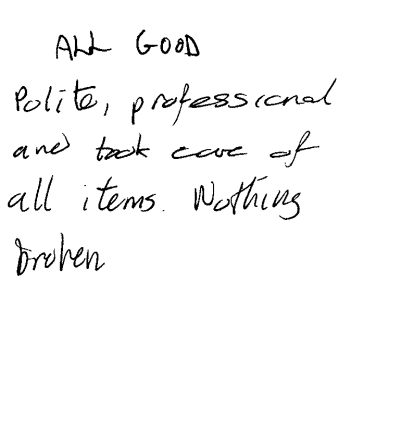 ALL GOOD
Polite, professional
and took care of
all items. Nothing
broken